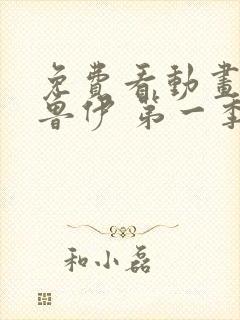 免費看動畫
魯伊 第一季
和小磊